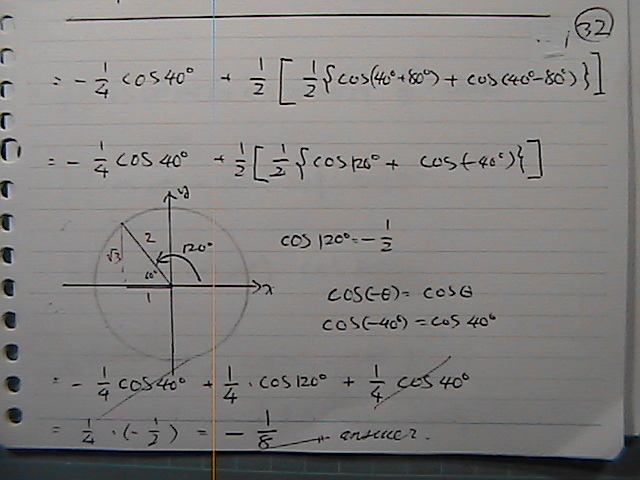 32
= - 1/4 cos40° + 1/2 [ 1/2 { cos(40°+80°) + cos(40°-80°) } ]
= - 1/4 cos40° + 1/2 [ 1/2 { cos120° + cos(-40°) } ]
y
√3 2 120°
60°
1 x
cos120° = - 1/2
cos(-θ) = cosθ
cos(-40°) = cos40°
= - 1/4 cos40° + 1/4 · cos120° + 1/4 cos40°
= 1/4 · (- 1/2) = - 1/8 answer.